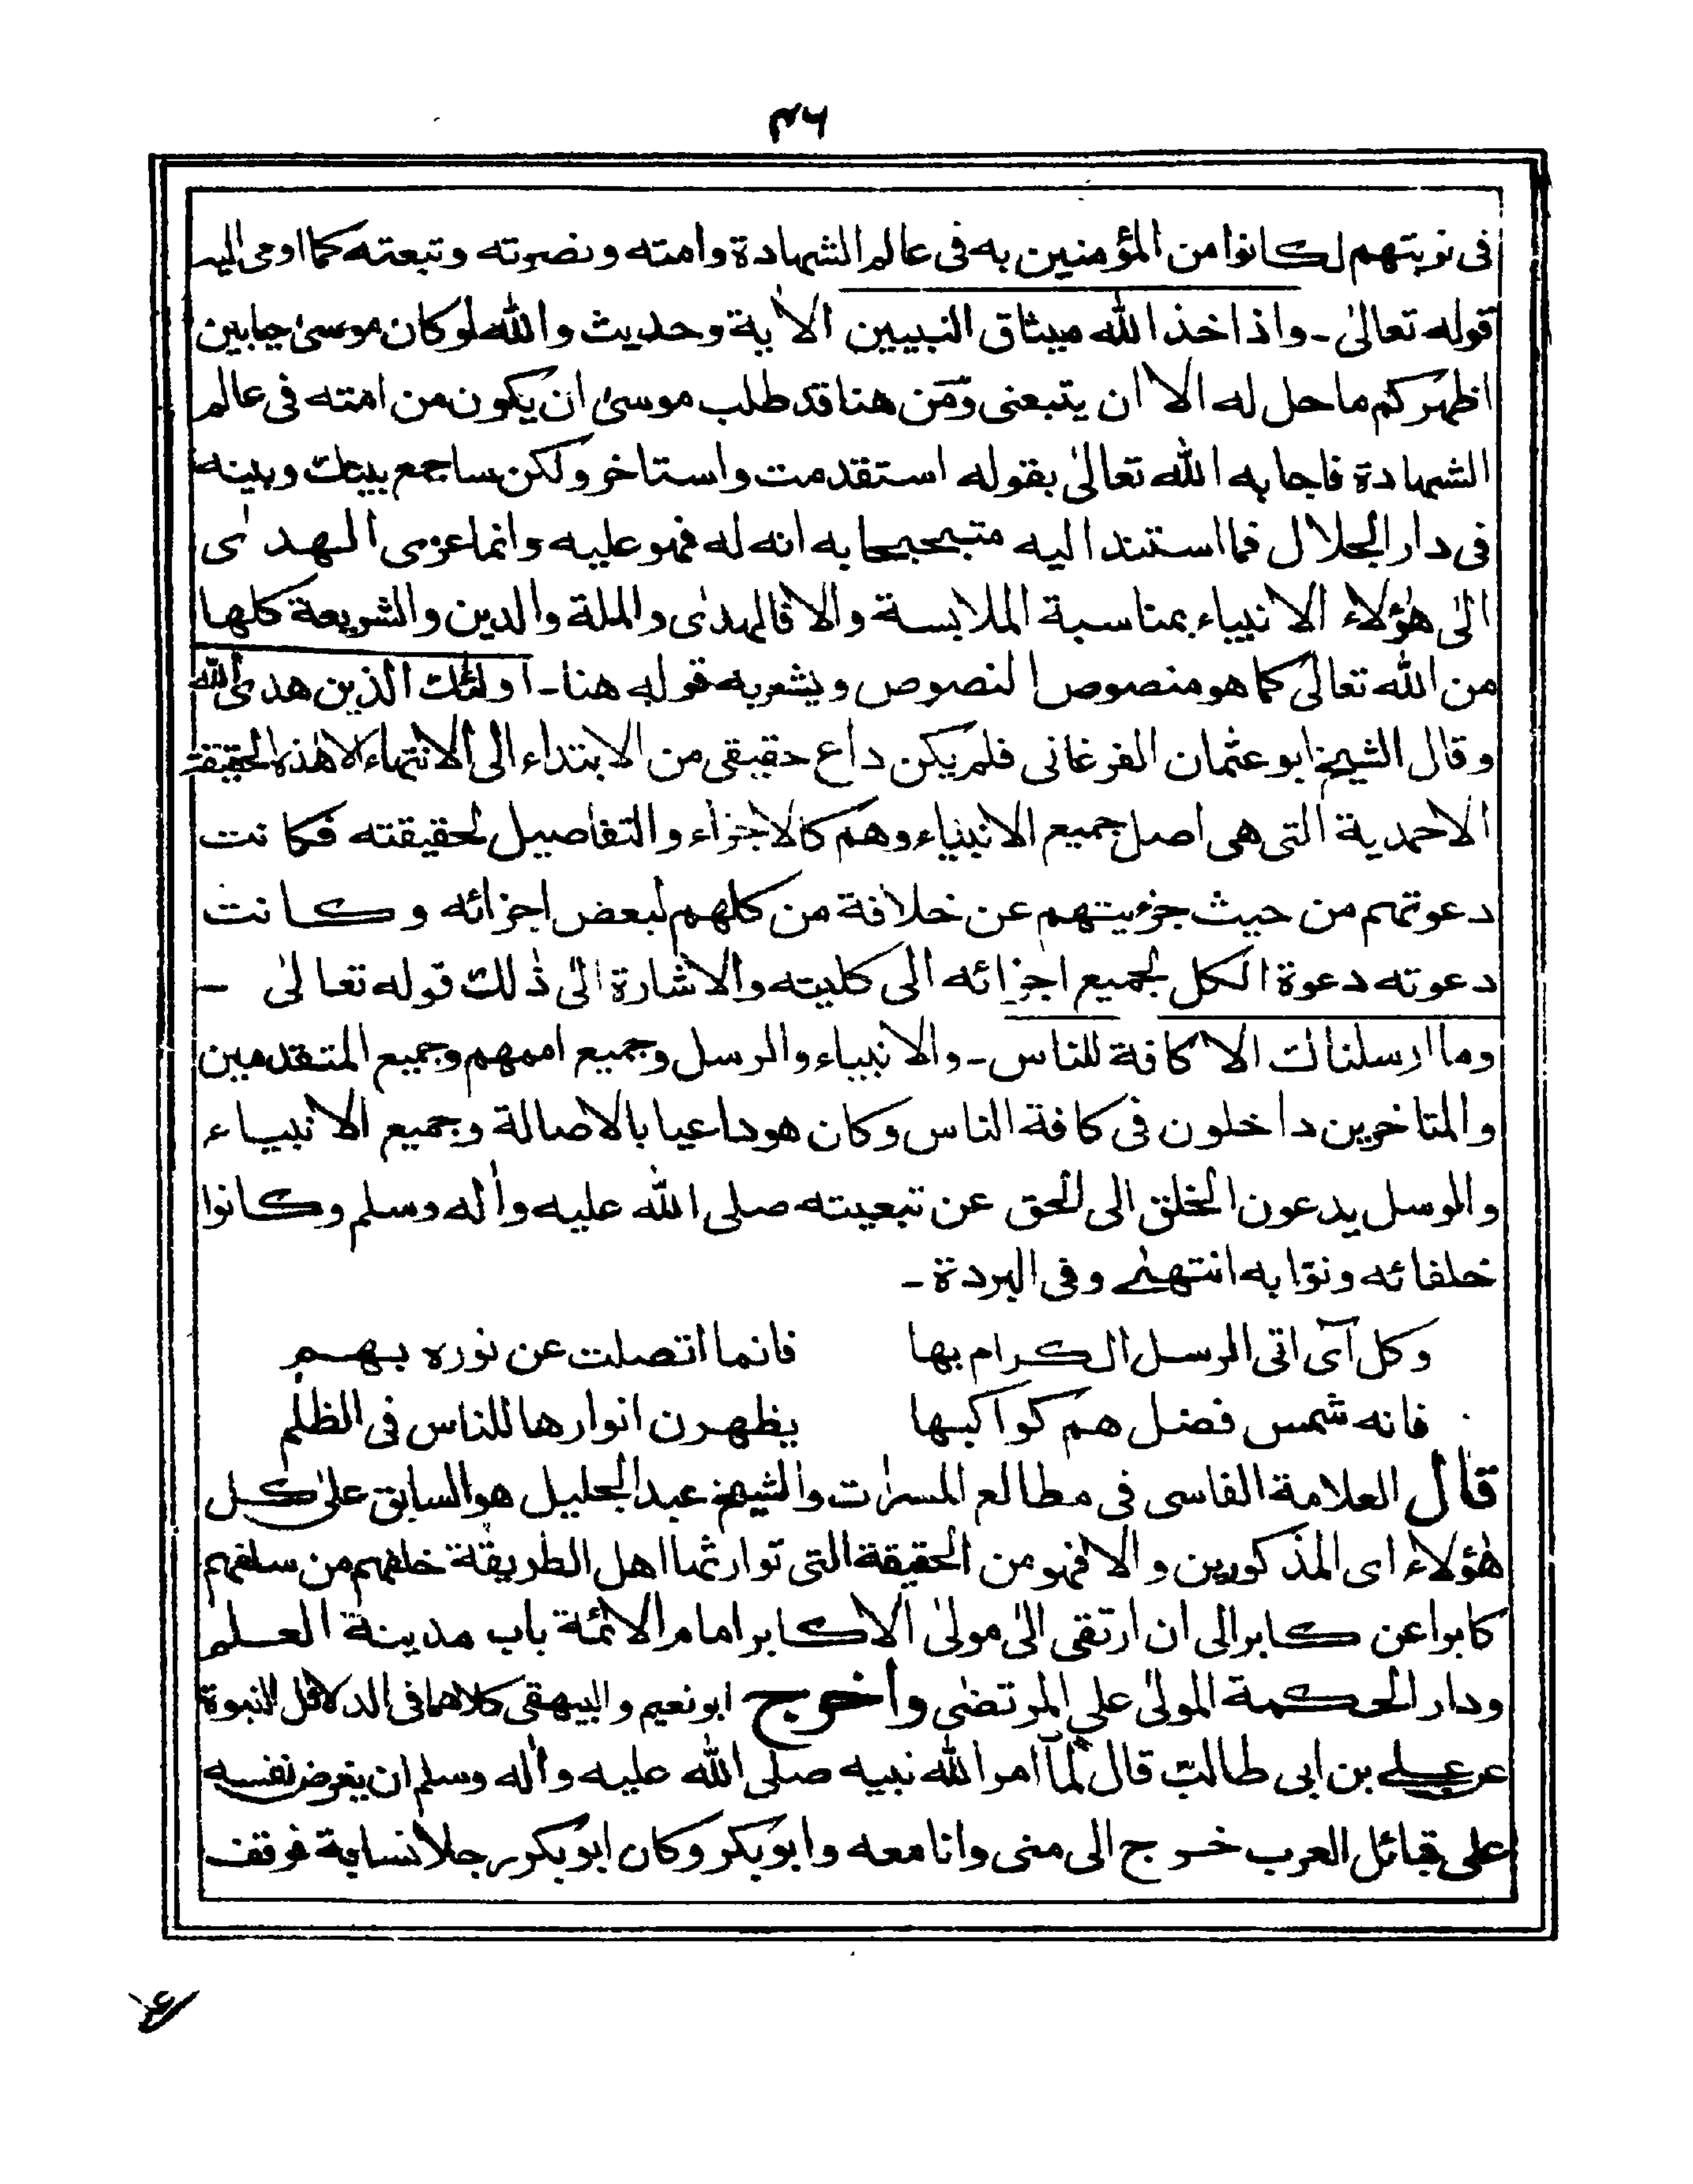 فى نوبتهم لكانوا من المؤمنين به فى عالم الشهادة وامته ونصرته وتبعته كما اومى اليه
قوله تعالىٰ ـ واذ اخذ الله ميثاق النبيين الاٰية وحديث والله لوكان موسىٰ حيا بين
اظهركم ما حل له الا ان يتبعنى ومن هنا قد طلب موسىٰ ان يكون من امته فى عالم
الشهادة فاجابه الله تعالىٰ بقوله استقدمت واستاخر ولكن ساجمع بينك وبينه
فى دار الجلال فما استند اليه متبجحبحا به انه له فهو عليه وانما عزى الهدىٰ
الىٰ هٰؤلاء الانبياء بمناسبة الملابسة والا فالهدىٰ والملة والدين والشريعة كلها
من الله تعالىٰ كما هو منصوص النصوص ويشعر به قوله هنا ـ اولٰئك الذين هدى الله
وقال الشيخ ابو عثمان الفرغانى فلم يكن داع حقيقى من الابتداء الى الانتهاء الا هٰذه الحقيقة
الاحمدية التى هى اصل جميع الانبياء وهم كالاجزاء والتفاصيل لحقيقته فكانت
دعوتهم من حيث جزءيتهم عن خلافة من كلهم لبعض اجزائه وكانت
دعوته دعوة الكل لجميع اجزائه الى كليته والاشارة الىٰ ذٰلك قوله تعالىٰ ـ
وما ارسلناك الا كافة للناس ـ والانبياء والرسل وجميع اممهم وجميع المتقدمين
والمتاخرين داخلون فى كافة الناس وكان هو داعيا بالاصالة وجميع الانبياء
والرسل يدعون الخلق الى الحق عن تبعيته صلى الله عليه واٰله وسلم وكانوا
خلفائه ونوّابه انتهىٰ وفى البردة ـ
وكل آى اتى الرسل الكرام بها فانما اتصلت عن نوره بهم
فانه شمس فضل هم كواكبها يظهرن انوارها للناس فى الظلم
قال العلامة الفاسى فى مطالع المسرات والشيخ عبد الجليل هو السابق علىٰ كل
هٰؤلاء اى المذكورين والا فهو من الحقيقة التى توارثها اهل الطريقة خلفهم من سلفهم
كابرا عن كابر الى ان ارتقى الىٰ مولىٰ الاكابر امام الائمة باب مدينة العلم
ودار الحكمة المولىٰ على المرتضٰى واخرج ابو نعيم والبيهقى كلاهما فى الدلائل النبوة
عن على بن ابى طالب قال لمآ امر الله نبيه صلى الله عليه واٰله وسلم ان يعرض نفسه
على قبائل العرب خرج الى منى وانا معه وابوبكر وكان ابوبكر رجلا نسابة فوقف